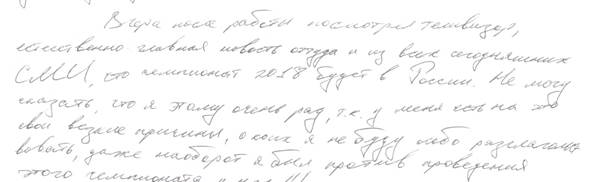 Вчера после работы посмотрел телевизор,
естественно главная новость оттуда и из всех сегодняшних
СМИ, что чемпионат 2018 будет в России. Не могу
сказать, что я этому очень рад, т.к. у меня есть на это
свои веские причины, о коих я не буду либо разглаголь
вовать, даже наоборот я был против проведения
этого чемпионата у нас!!!